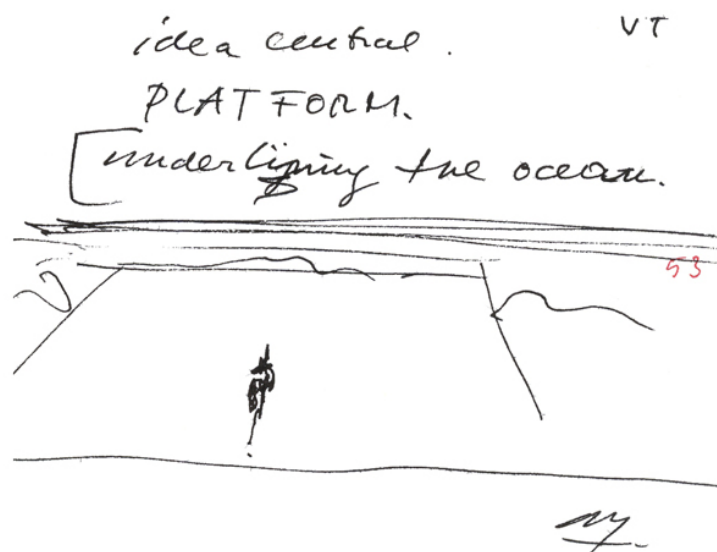 VT
idea central.
PLATFORM.
underlining the ocean.
53